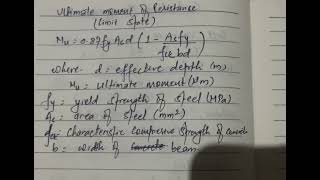 Ultimate moment of Resistance
(limit state)
Mu = 0.87fy Acd ( 1 - Acfy / fck bd )
where d = effective depth (m)
Mu = Ultimate moment (Nm)
fy = yield strength of steel (MPa)
Ac = area of steel (mm²)
fck = Characteristic Compressive Strength of
b = width of beam